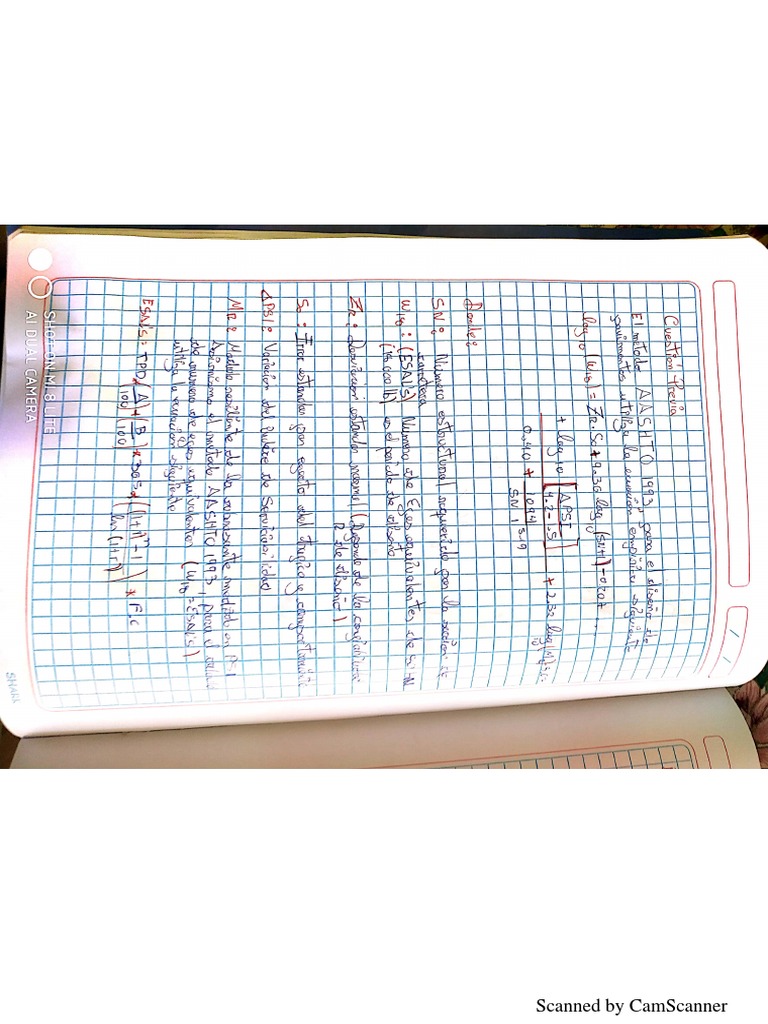 Cuestión Previa
El metodo AASHTO 1993, para el diseño de
pavimentos utiliza la ecuación empirica siguiente
log10 (W18) = ZR.So + 9.36 log10 (SN+1) - 0.20 + ...
+ log10 [ΔPSI / 4.2-1.5] + 2.32 log10 (MR)
0.40 + 1094 / (SN+1)5.19
Donde:
SN: Numero estructural requerido por la sección de
carretera
W18: (ESAL'S) Numero de Ejes equivalentes de
(18 000 lb) en el periodo de diseño
ZR: Desviacion estandar normal (depende de la confiabilidad
R de diseño)
So: Error estandar por efecto del trafico y comportamiento
ΔPSI: Variacion del Indice de Serviciabilidad
MR: Modulo resiliente de la subrasante medido en PSI
Asimismo el metodo AASHTO 1993, para el calculo
de numero de ejes equivalentes (W18 = ESAL'S)
utiliza la ecuación siguiente
ESAL'S: TPD x (A/100) x (B/100) x 365 x ((1+r)^n - 1) / ln(1+r) x F.C
SHOT ON MI 8 LITE
AI DUAL CAMERA
Scanned by CamScanner